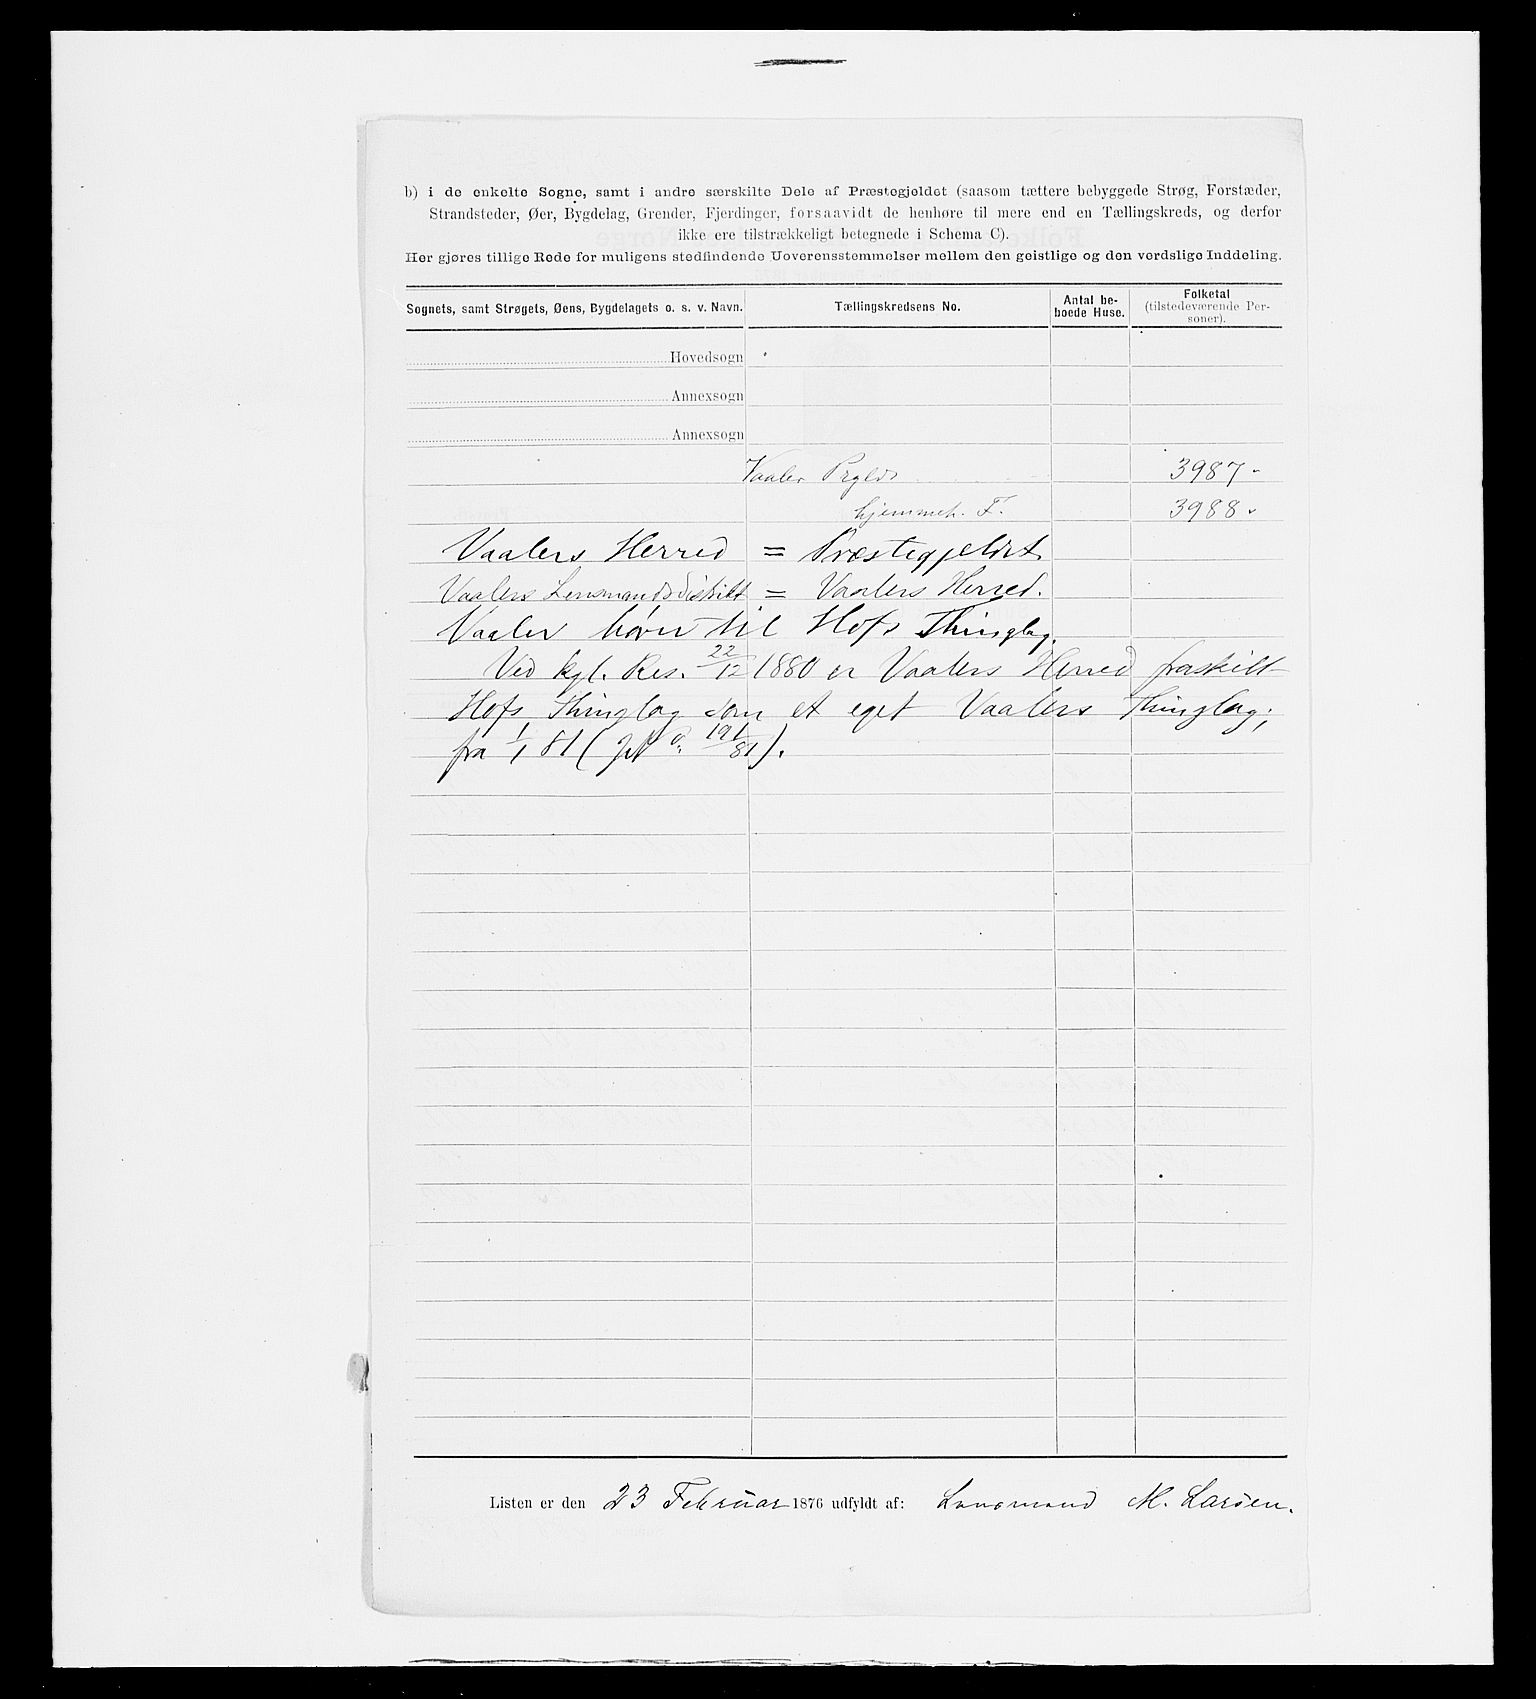 b) i de enkelte Sogne, samt i andre særskilte Dele af Præstegjeldet (saasom tættere bebyggede Strøg, Forstæder,
Strandsteder, Øer, Bygdelag, Grender, Fjerdinger, forsaavidt de henhøre til mere end en Tællingskreds, og derfor
ikke ere tilstrækkeligt betegnede i Schema C).
Her gjøres tillige Rede for muligens stedfindende Uoverensstemmelser mellem den geistlige og den verdslige Inddeling.
Sognets, samt Strøgets, Øens, Bygdelagets o. s. v. Navn. Tællingskredsens No. Antal be-
boede Huse. Folketal
(tilstedeværende Per-
soner).
Hovedsogn
Annexsogn
Annexsogn
Vaaler Prgld 3987
hjemmeh. F. 3988
Vaalers Herred = Præstegjeldet
Vaalers Lensmandsdistrikt = Vaalers Herred.
Vaaler hører til Hofs Thinglag.
Ved kgl. Res. 22/12 1880 er Vaalers Herred fraskilt
Hofs Thinglag som et eget Vaalers Thinglag;
fra 1/1 81 ( 191/81).
Listen er den 23 Februar 1876 udfyldt af: Lensmand M. Larsen.